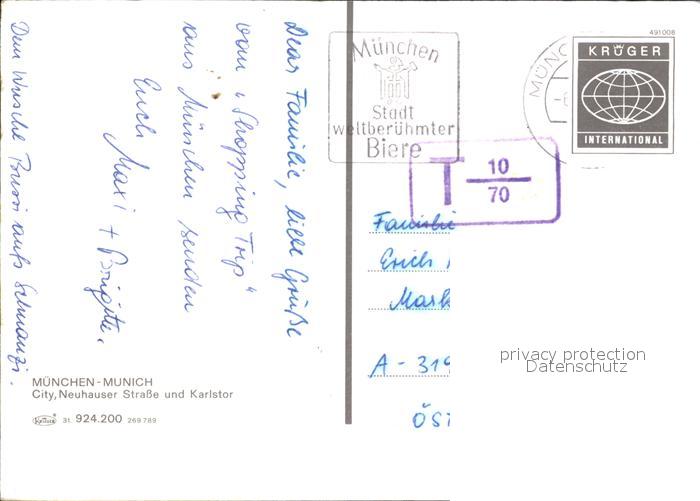 Dear Familie, liebe Grüße
vom "Shopping Trip"
aus München senden
Euch
Maxi + Brigitte.
Dem Wusche Bussi aufs Schnauzi.
MÜNCHEN - MUNICH
City, Neuhauser Straße und Karlstor
Krüger 3t. 924.200 269789
München
Stadt
weltberühmter
Biere
MÜNC
491008
KRÜGER
INTERNATIONAL
T 10
70
Familie
Erich
Mark
A - 319
ÖST
privacy protection
Datenschutz